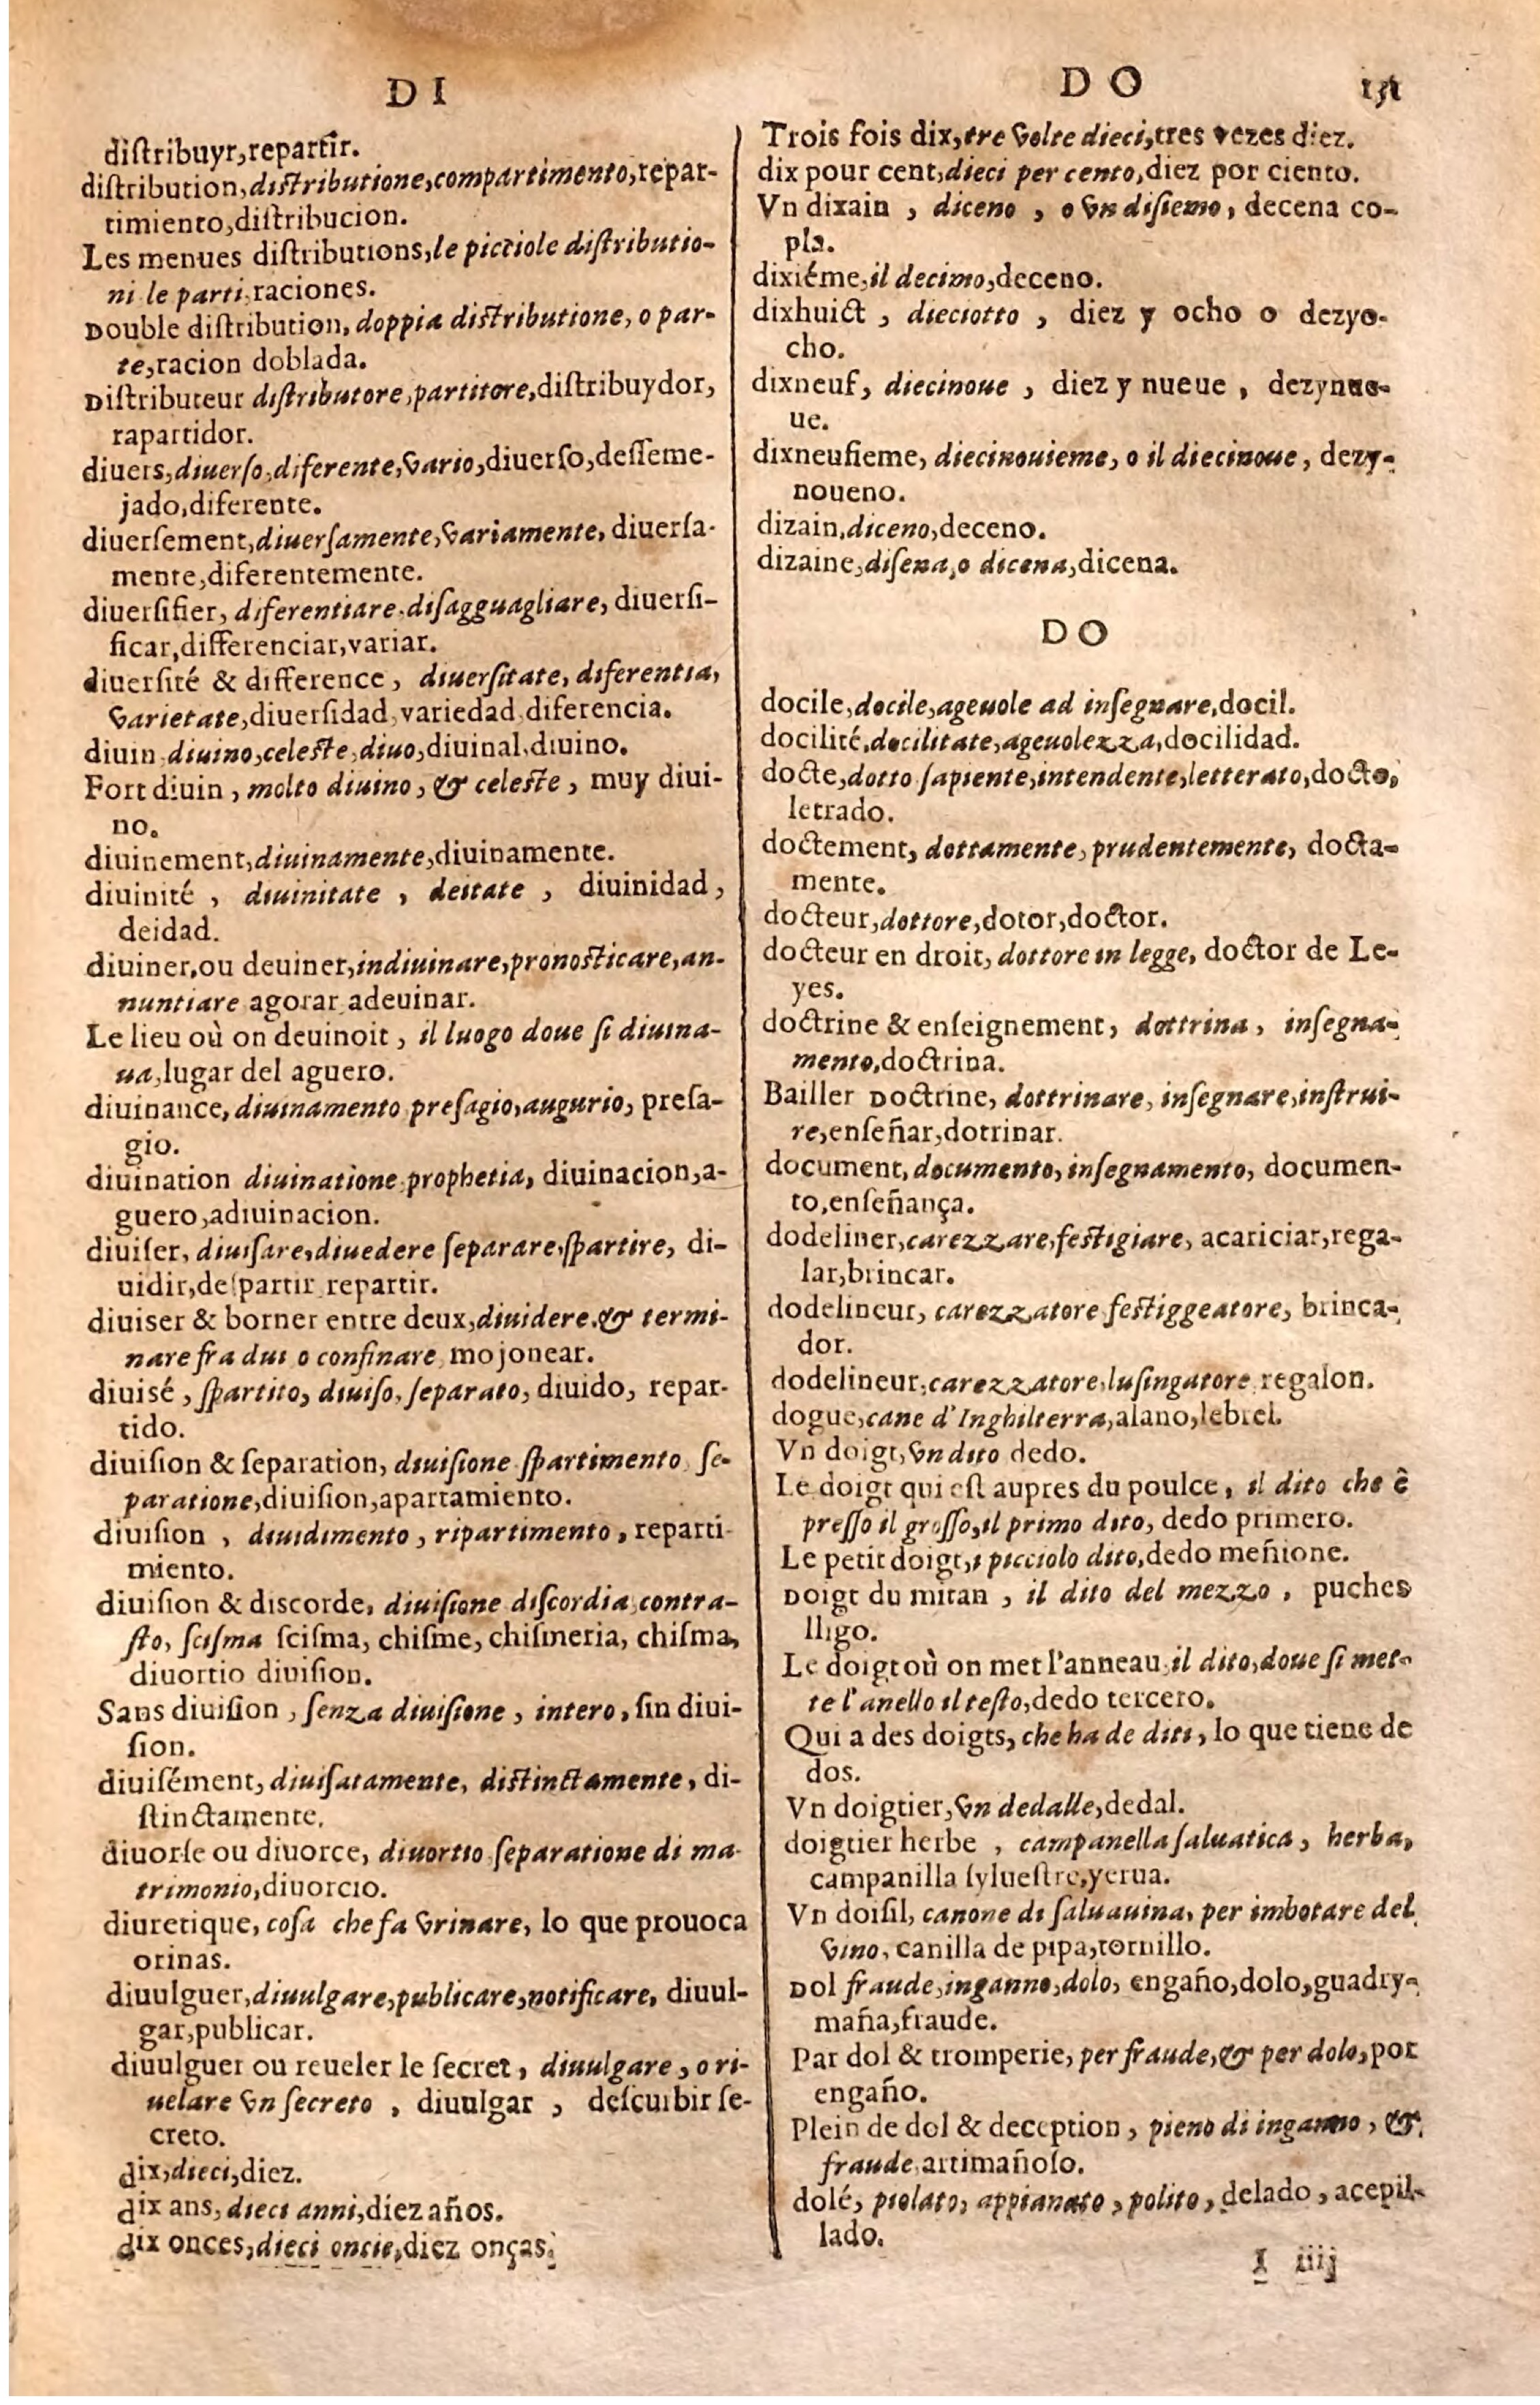 D I
diſtribuyr,repartir.
diſtribution,diſtributione,compartimento,repar-
timiento,diſtribucion.
Les menues diſtributions,le picciole diſtributio-
ni le parti,raciones.
Double diſtribution,doppia diſtributione, o par-
te,racion doblada.
Diſtributeur diſtributore,partitore,diſtribuydor,
rapartidor.
diuers,diuerſo,diferente,vario,diuerſo,deſſeme-
jado,diferente.
diuerſement,diuerſamente,variamente, diuerſa-
mente,diferentemente.
diuerſifier, diferentiare,diſagguagliare, diuerſi-
ficar,differenciar,variar.
diuerſité & difference, diuerſitate, diferentia,
varietate,diuerſidad,variedad,diferencia.
diuin diuino,celeſte,diuo,diuinal,diuino.
Fort diuin, molto diuino, & celeſte, muy diui-
no.
diuinement,diuinamente,diuinamente.
diuinité , diuinitate , deitate , diuinidad,
deidad.
diuiner,ou deuiner,indiuinare,pronoſticare,an-
nuntiare agorar adeuinar.
Le lieu où on deuinoit, il luogo doue ſi diuina-
ua,lugar del aguero.
diuinance, diuinamento preſagio,augurio, preſa-
gio.
diuination diuinatione,prophetia, diuinacion,a-
guero,adiuinacion.
diuiſer, diuiſare,diuedere ſeparare,ſpartire, di-
uidir,deſpartir repartir.
diuiser & borner entre deux,diuidere,& termi-
nare fra dui o confinare mojonear.
diuisé, ſpartito, diuiſo,ſeparato, diuido, repar-
tido.
diuiſion & ſeparation, diuiſione ſpartimento, ſe-
paratione,diuiſion,apartamiento.
diuiſion , diuidimento, ripartimento, reparti-
miento.
diuiſion & discorde, diuiſione diſcordia,contra-
ſto, ſciſma ſciſma, chiſme, chiſmeria, chiſma,
diuortio diuiſion.
Sans diuiſion, ſenza diuiſione, intero, ſin diui-
ſion.
diuiſément, diuiſatamente, diſtinctamente, di-
ſtinctamente.
diuorſe ou diuorce, diuortio ſeparatione di ma-
trimonio,diuorcio.
diuretique, coſa che fa vrinare, lo que prouoca
orinas.
diuulguer,diuulgare,publicare,notificare, diuul-
gar,publicar.
diuulguer ou reueler le ſecret, diuulgare, o ri-
uelare vn ſecreto , diuulgar , deſcuibir ſe-
creto.
dix,dieci,diez.
dix ans, dieci anni,diez años.
dix onces,dieci oncie,diez onças.
D O
Trois fois dix,tre volte dieci,tres vezes diez.
dix pour cent,dieci per cento,diez por ciento.
Vn dixain , diceno , o vn diſiemo, decena co-
pla.
dixiéme,il decimo,deceno.
dixhuict , dieciotto , diez y ocho o dezyo-
cho.
dixneuf, diecinoue , diez y nueue , dezynue-
ue.
dixneufieme, diecinouieme, o il diecinoue, dezy-
noueno.
dizain,diceno,deceno.
dizaine,diſena,o dicena,dicena.
D O
docile,docile,ageuole ad inſegnare,docil.
docilité,docilitate,ageuolezza,docilidad.
docte,dotto ſapiente,intendente,letterato,docto,
letrado.
doctement, dottamente,prudentemente, docta-
mente.
docteur,dottore,dotor,doctor.
docteur en droit, dottore in legge, doctor de Le-
yes.
doctrine & enſeignement, dottrina, inſegna-
mento,doctrina.
Bailler Doctrine, dottrinare, inſegnare,inſtrui-
re,enſeñar,dotrinar.
document,documento,inſegnamento, documen-
to,enſeñança.
dodeliner,carezzare,feſtigiare, acariciar,rega-
lar,brincar.
dodelineur, carezzatore feſtiggeatore, brinca-
dor.
dodelineur,carezzatore,luſingatore,regalon.
dogue,cane d'Inghilterra,alano,lebrel.
Vn doigt,vn dito dedo.
Le doigt qui est aupres du poulce, il dito che ê
preſſo il groſſo,il primo dito, dedo primero.
Le petit doigt,i picciolo dito,dedo meñione.
Doigt du mitan , il dito del mezzo , puches
lligo.
Le doigt où on met l'anneau,il dito,doue ſi met-
te l'anello il teſto,dedo tercero.
Qui a des doigts, che ha de diti, lo que tiene de
dos.
Vn doigtier,vn dedalle,dedal.
doigtier herbe , campanella ſaluatica, herba,
campanilla ſylueſtre,yerua.
Vn doiſil, canone di ſaluauina, per imbotare del
vino, canilla de pipa,tornillo.
Dol fraude,inganno,dolo, engaño,dolo,guadry-
maña,fraude.
Par dol & tromperie, per fraude,& per dolo,por
engaño.
Plein de dol & deception, pieno di inganno, &
fraude artimañoſo.
dolé, piolato, appianato, polito, delado, acepil-
lado.
I iiij